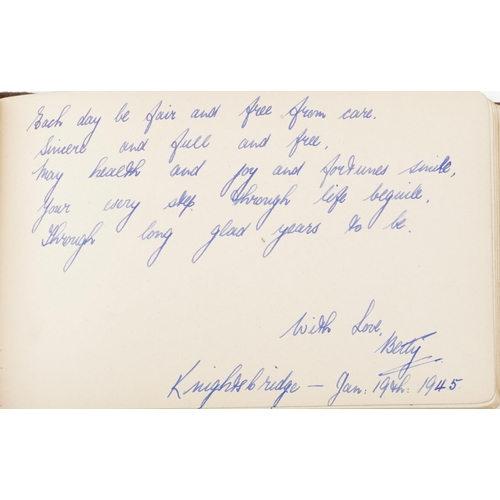 Each day be fair and free from care.
Sincere and full and free,
May health and joy and fortunes smile,
Your every step through life beguile,
Through long glad years to be.
With Love,
Betty
Knightsbridge - Jan: 19th: 1945